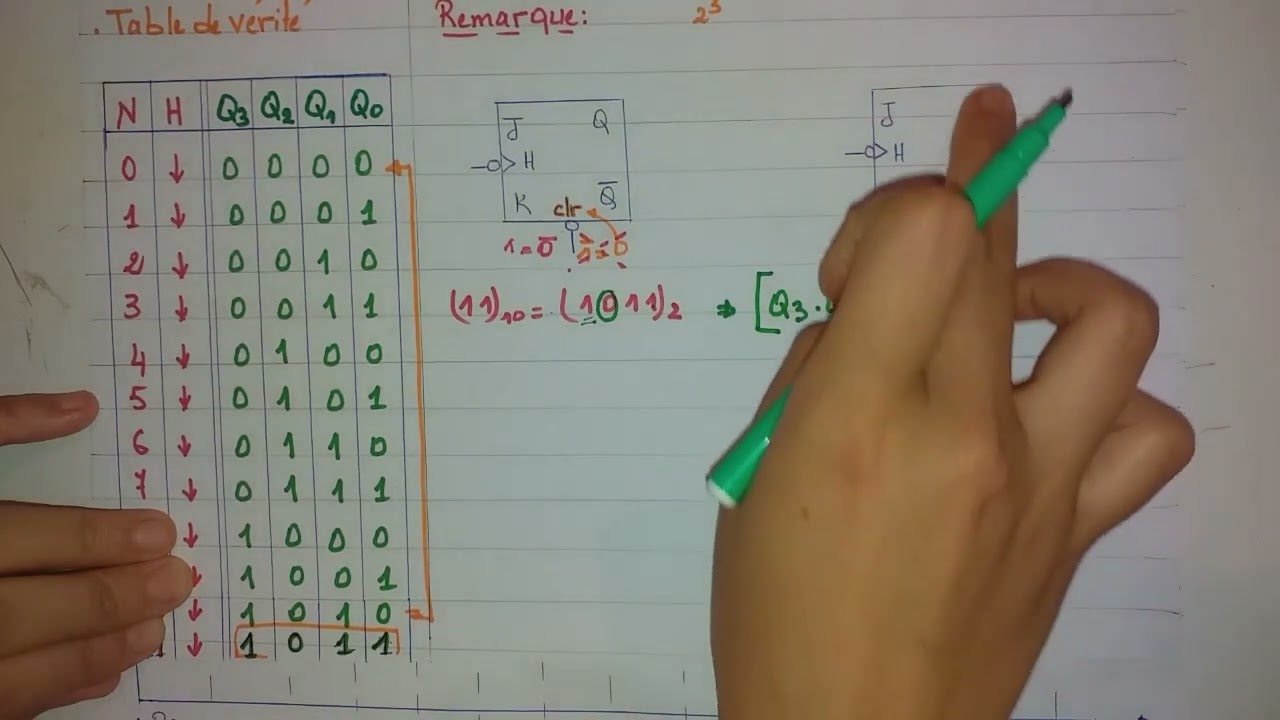 . Table de vérité
Remarque:
N H Q3 Q2 Q1 Q0
0 ↓ 0 0 0 0
1 ↓ 0 0 0 1
2 ↓ 0 0 1 0
3 ↓ 0 0 1 1
4 ↓ 0 1 0 0
5 ↓ 0 1 0 1
6 ↓ 0 1 1 0
7 ↓ 0 1 1 1
↓ 1 0 0 0
↓ 1 0 0 1
↓ 1 0 1 0
↓ 1 0 1 1
J Q
H
K clr Q̅
1 = 0̅
(11)10 = (1011)2 ⇒ [Q3.
J
H